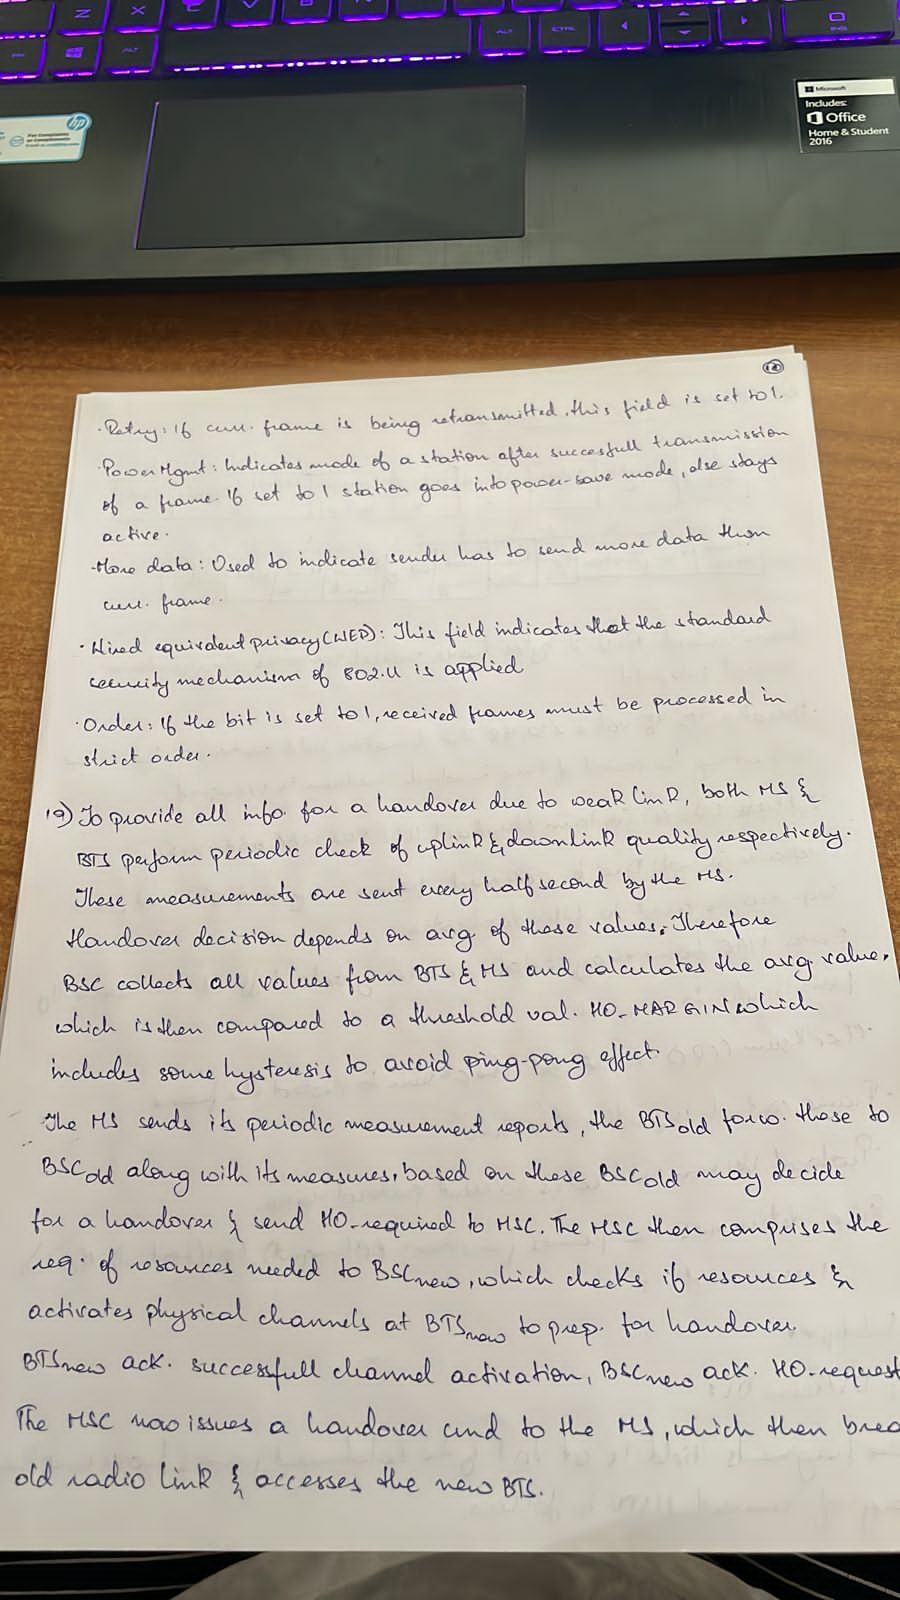 Z X
ALT ALT CTRL
hp
For Complaints
Microsoft
Includes:
Office
Home & Student
2016
12
· Retry: If curr. frame is being retransmitted, this field is set to 1.
· Power Mgmt: Indicates mode of a station after succesfull transmission
of a frame. If set to 1 station goes into power-save mode, else stays
active.
· More data: Used to indicate sender has to send more data than
curr. frame.
· Wired equivalent privacy (WEP): This field indicates that the standard
security mechanism of 802.11 is applied
· Order: If the bit is set to 1, received frames must be processed in
strict order.
19) To provide all info for a handover due to weak link, both MS &
BTS perform periodic check of uplink & downlink quality respectively.
These measurements are sent every half second by the MS.
Handover decision depends on avg. of these values. Therefore
BSC collects all values from BTS & MS and calculates the avg. value,
which is then compared to a threshold val. HO_MARGIN which
includes some hysteresis to avoid ping-pong effect.
The MS sends its periodic measurement reports, the BTSold forw. these to
BSCold along with its measures, based on these BSCold may decide
for a handover & send HO-required to MSC. The MSC then comprises the
req. of resources needed to BSCnew, which checks if resources &
activates physical channels at BTSnew to prep. for handover.
BTSnew ack. successfull channel activation, BSCnew ack. HO-request
The MSC now issues a handover cmd to the MS, which then brea
old radio link & accesses the new BTS.